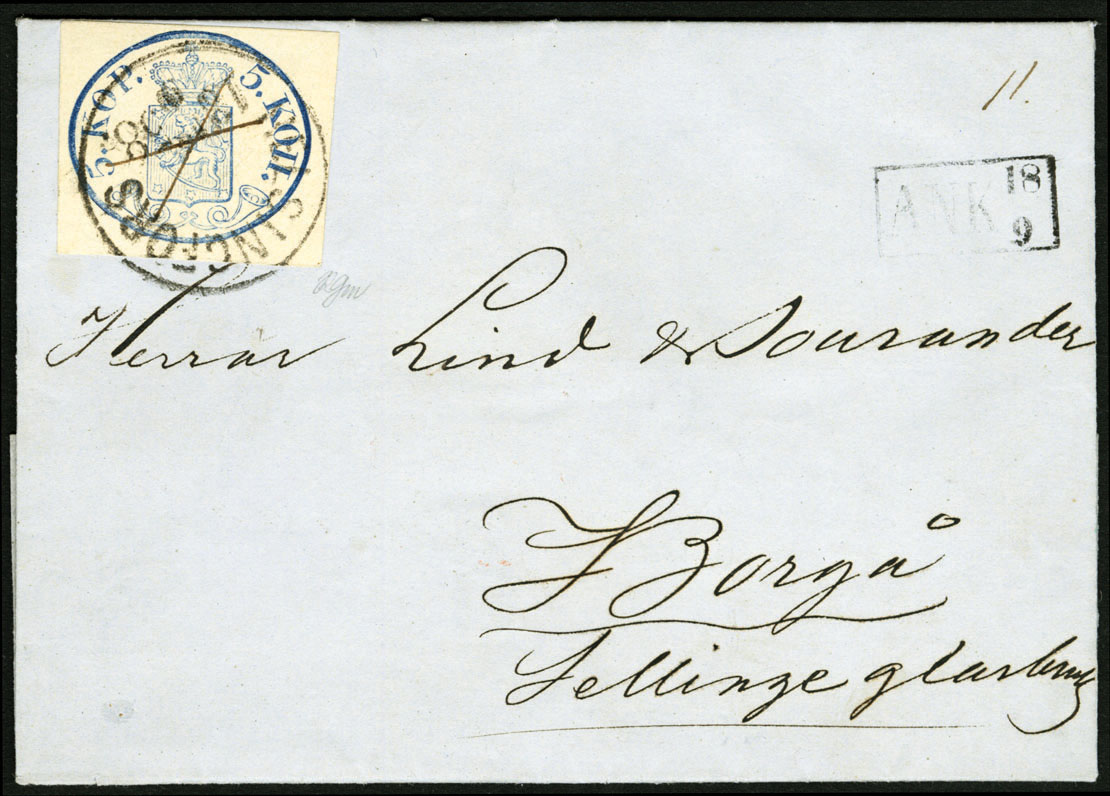 5. KOP. 5. КОП.
11.
ANK 18
9
HELSINGFORS
Herrar Lind & Sourander
Borgå
Tellinge glasbruk